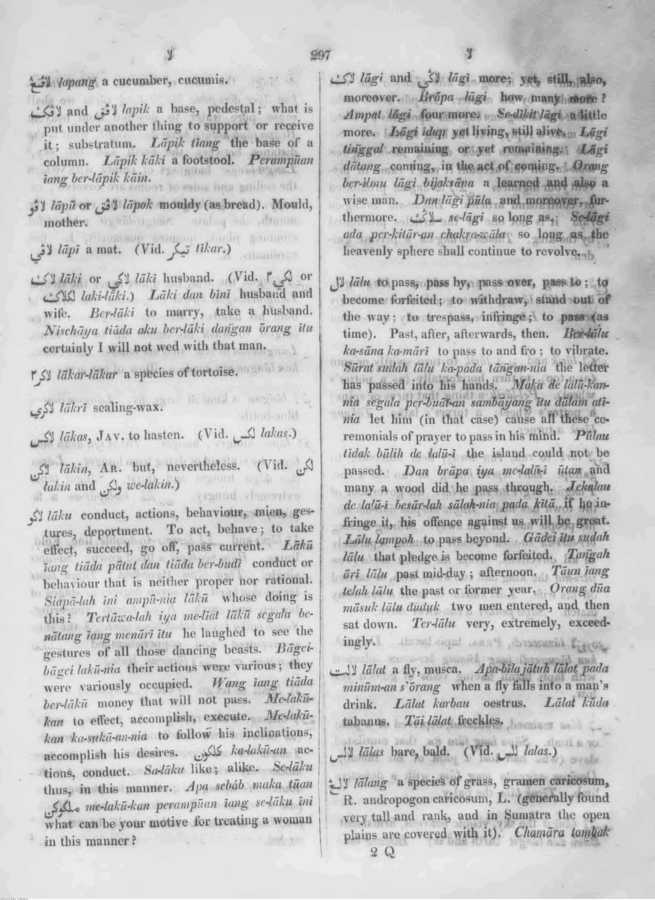 لا 297 لا
لافڠ lapang a cucumber, cucumis.
لافک and لافق lapik a base, pedestal; what is
put under another thing to support or receive
it; substratum. Lāpik tīang the base of a
column. Lāpik kāki a footstool. Perampūan
īang ber-lāpik kāin.
لافو lāpū or لافق lāpok mouldy (as bread). Mould,
mother.
لافي lāpī a mat. (Vid. تيكر tīkar.)
لاک lāki or لاكي lākī husband. (Vid. لكي٢ or
للاک laki-lāki.) Lāki dan bīnī husband and
wife. Ber-lāki to marry, take a husband.
Nischāya tiāda aku ber-lāki dangan ōrang itu
certainly I will not wed with that man.
لاكر٢ lākar-lākar a species of tortoise.
لاكري lākrī sealing-wax.
لاكس lākas, JAV. to hasten. (Vid. لكس lakas.)
لاكن lākin, AR. but, nevertheless. (Vid. لكن
lakin and ولكن we-lakin.)
لاكو lāku conduct, actions, behaviour, mien, ges-
tures, deportment. To act, behave; to take
effect, succeed, go off, pass current. Lākū
īang tiāda pātut dan tiāda ber-budī conduct or
behaviour that is neither proper nor rational.
Siapā-lah ini ampū-nia lākū whose doing is
this? Tertāwa-lah iya me-līat lākū segala be-
nātang īang menārī itu he laughed to see the
gestures of all those dancing beasts. Bāgei-
bāgei lakū-nia their actions were various; they
were variously occupied. Wang īang tiāda
ber-lākū money that will not pass. Me-lakū-
kan to effect, accomplish, execute. Me-lakū-
kan ka-sukā-an-nia to follow his inclinations,
accomplish his desires. كلاكون ka-lakū-an ac-
tions, conduct. Sa-lāku like; alike. Se-lāku
thus, in this manner. Apa sebāb maka tūan
ملكوكن me-lakū-kan perampūan īang se-lāku īni
what can be your motive for treating a woman
in this manner?
لاک lāgi and لاكي lāgī more; yet, still, also,
moreover. Brāpa lāgi how many more?
Ampat lāgi four more. Se-dikit lāgi a little
more. Lāgi idup yet living, still alive. Lāgi
tinggal remaining or yet remaining. Lāgi
dātang coming, in the act of coming. Orang
ber-ilmu lāgi bijaksāna a learned and also a
wise man. Dan lāgi pūla and moreover, fur-
thermore. سلاک se-lāgi so long as. Se-lāgi
ada per-kitār-an chakra-wāla so long as the
heavenly sphere shall continue to revolve.
لال lālu to pass, pass by, pass over, pass to; to
become forfeited; to withdraw, stand out of
the way; to trespass, infringe; to pass (as
time). Past, after, afterwards, then. Ber-lālu
ka-sāna ka-māri to pass to and fro; to vibrate.
Sūrat sudah lālu ka-pada tāngan-nia the letter
has passed into his hands. Maka de lālū-kan-
nia segala per-buāt-an sambāyang itu dālam ati-
nia let him (in that case) cause all these ce-
remonials of prayer to pass in his mind. Pūlau
tidak būlih de lalū-i the island could not be
passed. Dan brāpa iya me-lalū-i ūtan and
many a wood did he pass through. Jekalau
de lalū-i besār-lah sālah-nia pada kitā if he in-
fringe it, his offence against us will be great.
Lālu lampoh to pass beyond. Gādei itu sudah
lālu that pledge is become forfeited. Tangah
āri lālu past mid-day; afternoon. Tāun īang
telah lālu the past or former year. Orang dūa
māsuk lālu duduk two men entered, and then
sat down. Ter-lālu very, extremely, exceed-
ingly.
لالت lālat a fly, musca. Apa-bīla jātuh lālat pada
minūm-an s'ōrang when a fly falls into a man's
drink. Lālat karbau oestrus. Lālat kūda
tabanus. Tāi lālat freckles.
لالس lālas bare, bald. (Vid. للس lalas.)
لالڠ lālang a species of grass, gramen caricosum,
R. andropogon caricosum, L. (generally found
very tall and rank, and in Sumatra the open
plains are covered with it). Chamāra tambak
2 Q